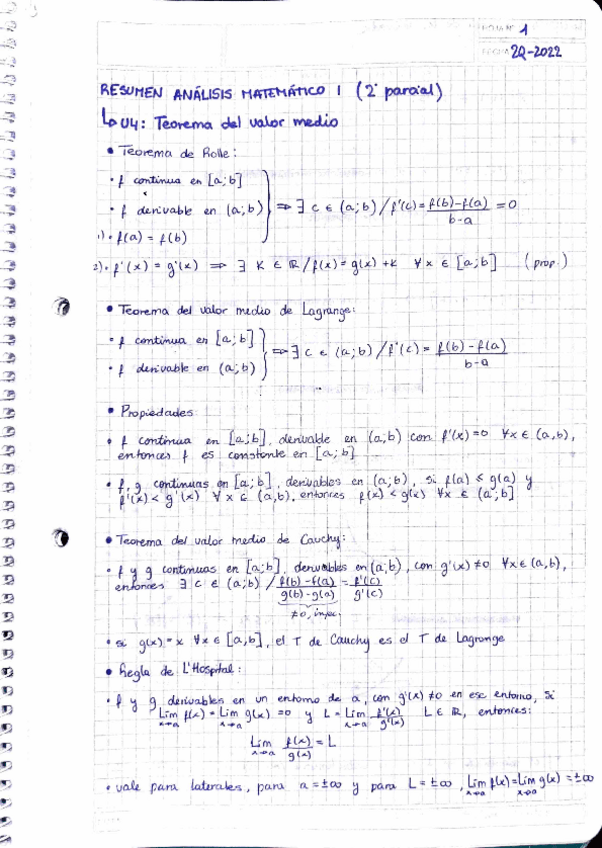 HOJA Nº 1
FECHA 2Q-2022
RESUMEN ANÁLISIS MATEMÁTICO 1 (2° parcial)
↳ U4: Teorema del valor medio
• Teorema de Rolle:
• f continua en [a;b]
• f derivable en (a;b) } ⇒ ∃ c ∈ (a;b) / f'(c) = f(b)-f(a) / b-a = 0
1) • f(a) = f(b)
2) • f'(x) = g'(x) ⇒ ∃ K ∈ ℝ / f(x) = g(x) + K ∀x ∈ [a;b] (prop.)
• Teorema del valor medio de Lagrange:
• f continua en [a;b]
• f derivable en (a;b) } ⇒ ∃ c ∈ (a;b) / f'(c) = f(b)-f(a) / b-a
• Propiedades:
• f continua en [a;b], derivable en (a;b) con f'(x)=0 ∀x ∈ (a,b),
entonces f es constante en [a;b]
• f, g continuas en [a;b], derivables en (a;b), si f(a) ≤ g(a) y
f'(x) < g'(x) ∀x ∈ (a,b), entonces f(x) < g(x) ∀x ∈ (a;b]
• Teorema del valor medio de Cauchy:
• f y g continuas en [a;b], derivables en (a;b), con g'(x) ≠ 0 ∀x ∈ (a,b),
entonces ∃ c ∈ (a;b) / f(b)-f(a) / g(b)-g(a) = f'(c) / g'(c)
≠0, inyec.
• si g(x) = x ∀x ∈ [a,b], el T de Cauchy es el T de Lagrange
• Regla de L'Hospital:
• f y g derivables en un entorno de a, con g'(x) ≠ 0 en ese entorno, si
Lim x→a f(x) = Lim x→a g(x) = 0 y L = Lim x→a f'(x) / g'(x) L ∈ ℝ, entonces:
Lim x→a f(x) / g(x) = L
• vale para laterales, para a = ±∞ y para L = ±∞, Lim x→a f(x) = Lim x→a g(x) = ±∞